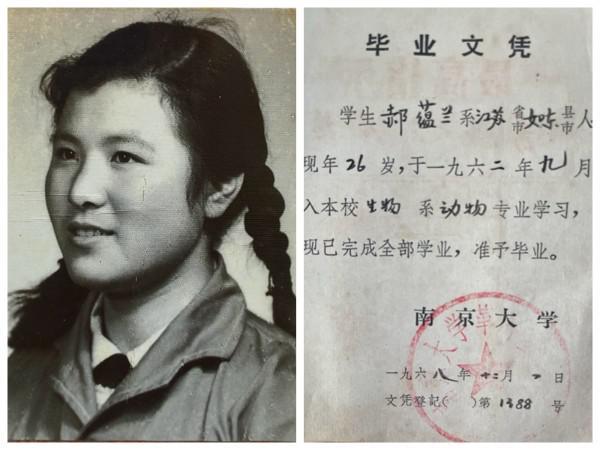 毕业文凭
学生郝蕴兰系江苏省市如东县市人
现年26岁,于一九六二年九月
入本校生物系动物专业学习,
现已完成全部学业,准予毕业。
南京大学
一九六八年十二月二日
文凭登記( )第1388号